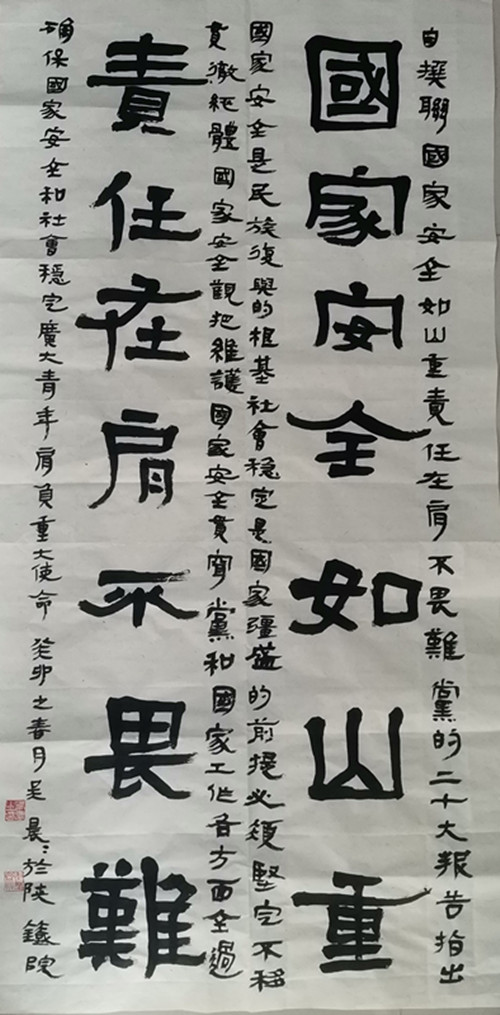 自撰聯國家安全如山重責任在肩不畏難黨的二十大报告指出
國家安全如山重
國家安全是民族復興的根基社會稳定是國家强盛的前提必须堅定不移
貫徹總體國家安全觀把維護國家安全貫穿黨和國家工作各方面全過
責任在肩不畏難
確保國家安全和社會穩定廣大青年肩負重大使命癸卯之春月吴晨晨於陕鐵院